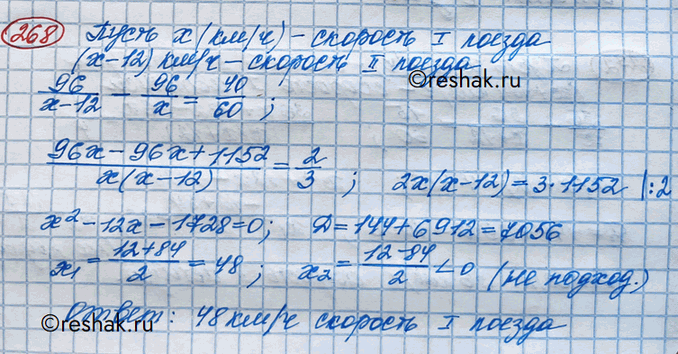 268 Пусть х (км/ч) – скорость I поезда
(х–12) км/ч – скорость II поезда
©reshak.ru
96/(х–12) – 96/х = 40/60 ;
(96х–96х+1152)/(х(х–12)) = 2/3 ; 2х(х–12)=3·1152 |:2
х²–12х–1728=0; Д=144+6912=7056
х₁ = (12+84)/2 = 48 ; х₂ = (12–84)/2 <0 (не подход.)
Ответ: 48 км/ч скорость I поезда
©reshak.ru